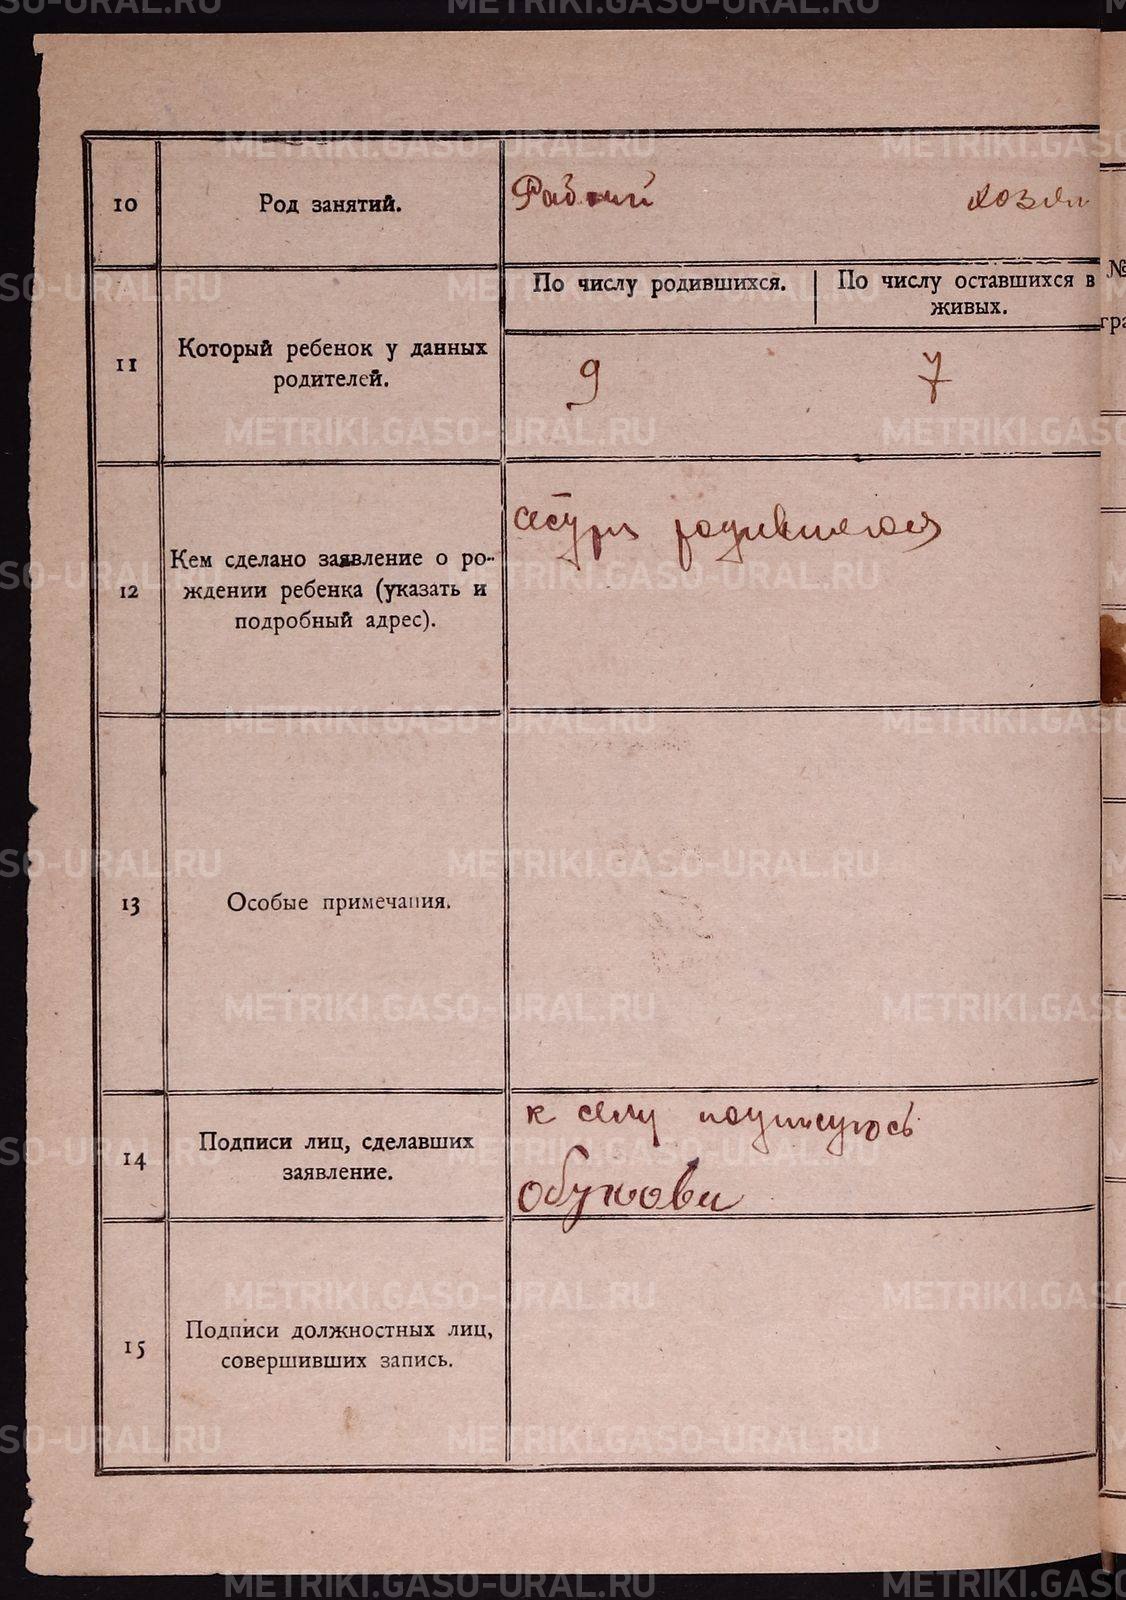 10
Род занятий.
Рабочий хозяй
11
Который ребенок у данных
родителей.
По числу родившихся.
По числу оставшихся в
живых.
9
7
№
гра
12
Кем сделано заявление о ро-
ждении ребенка (указать и
подробный адрес).
родившегося
13
Особые примечания.
14
Подписи лиц, сделавших
заявление.
к сему подписуюсь
15
Подписи должностных лиц,
совершивших запись.
METRIKI.GASO-URAL.RU